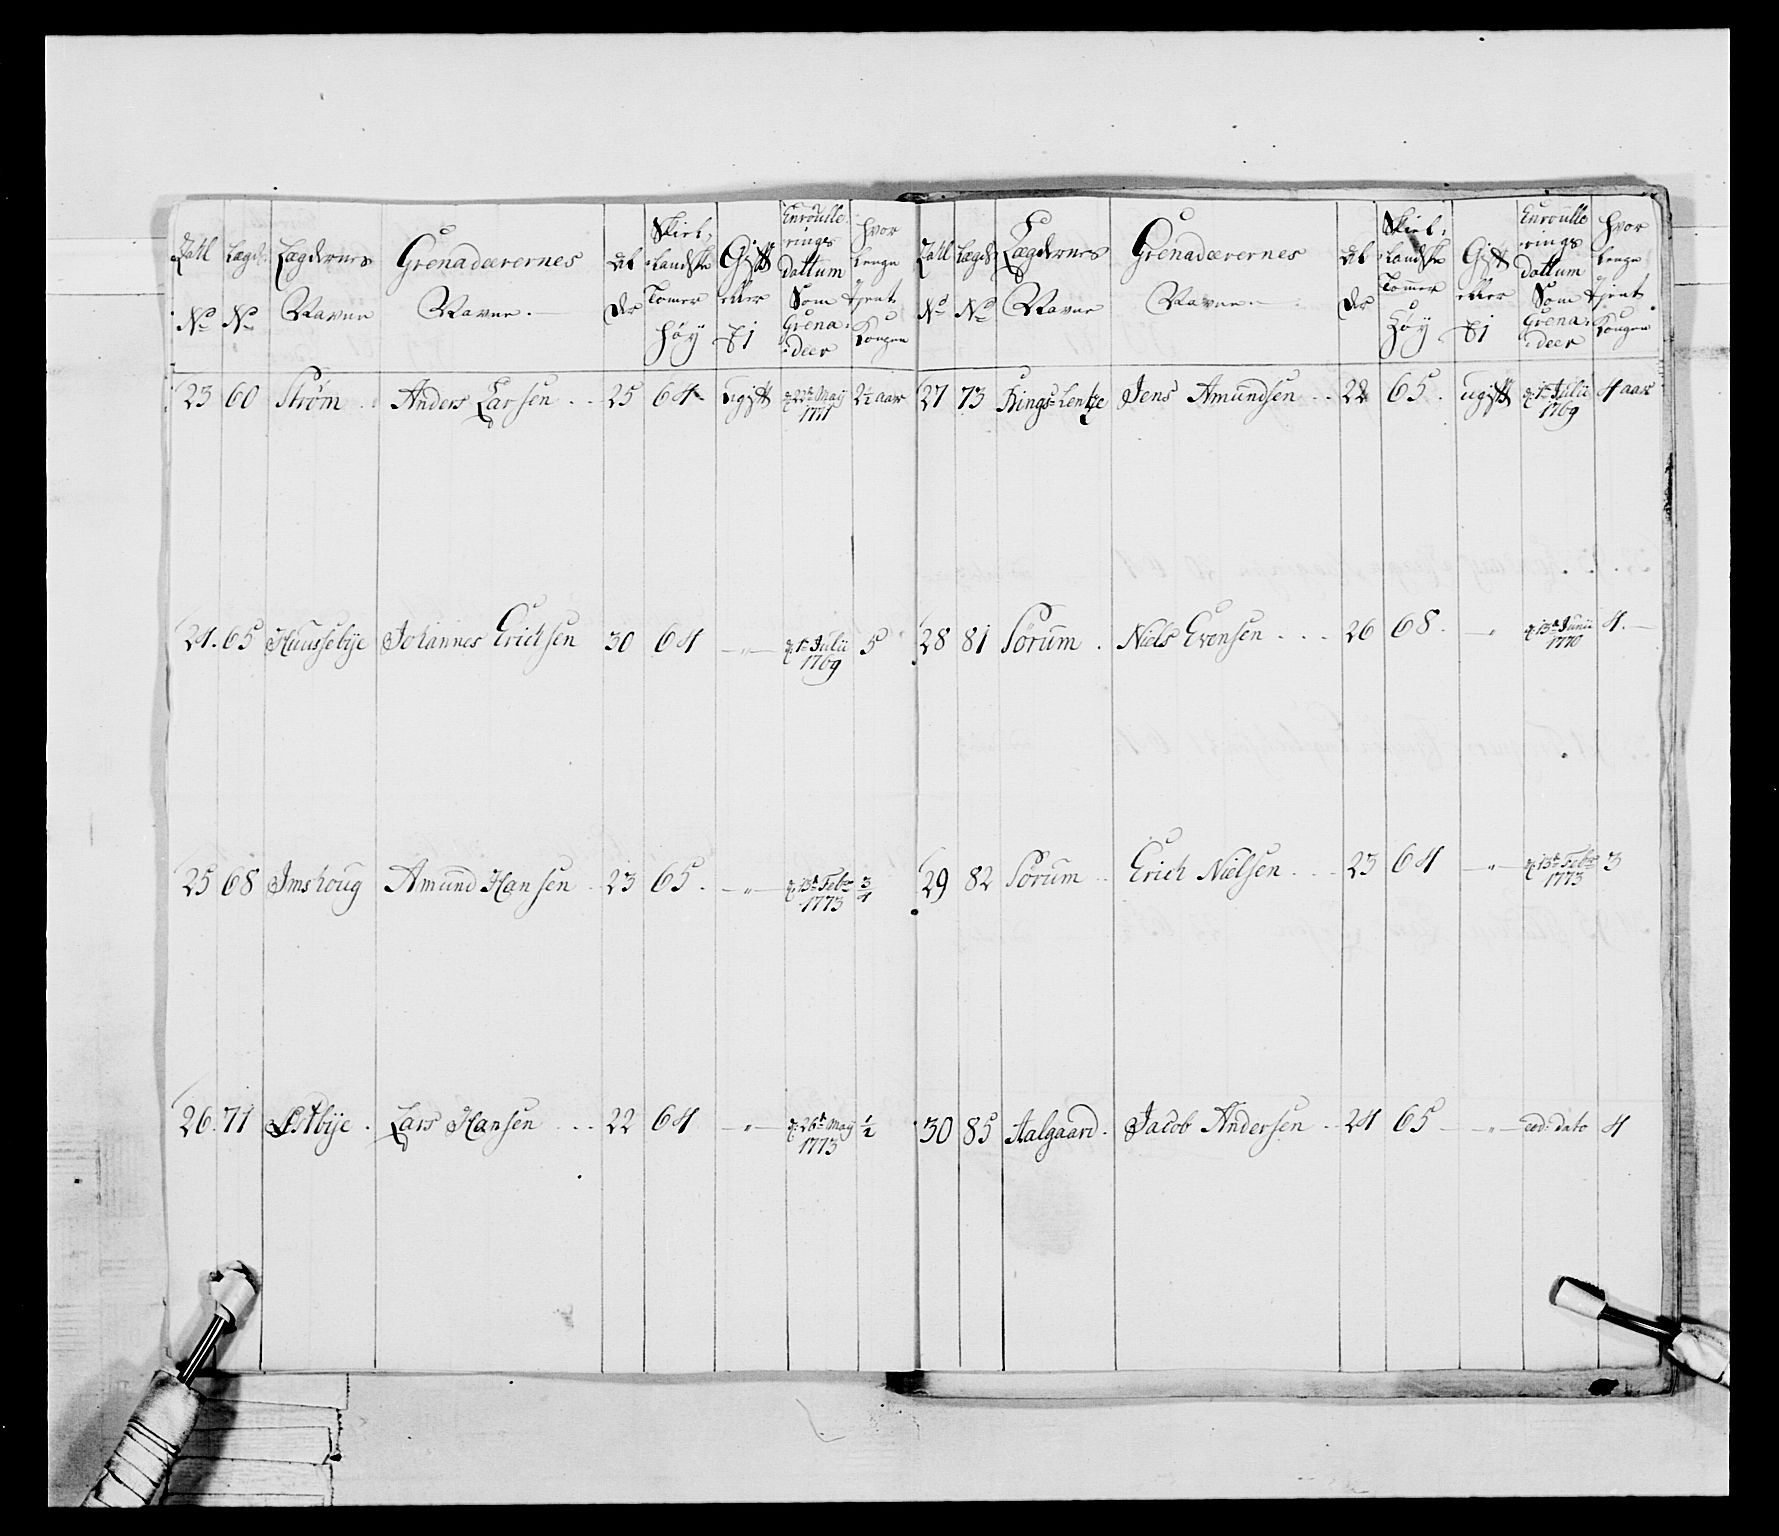 Tall N° | Lægd: N° | Lægdernes Navne | Grenadeerernes Navne. | Al der | Skiel: landske Tomer Høy | Gift eller Ei | Enroulle rings dattum Som Grena: deer | Hvor lenge Tjent Kongen
23 | 60 | Strøm | Anders Larsen | 25 | 64 | ugift | d. 22de May 1771 | 2½ aar
24. | 65 | Huussebÿe | Johannes Erichsen | 30 | 64 | —"— | d. 1te Julii 1769 | 5
25 | 68 | Imshoug | Amund Hansen | 23 | 65. | —"— | d. 13de Febr 1773 | ¾
26. | 71 | Østbÿe. | Lars Hansen | 22 | 64 | —"— | d. 26de May 1773 | ½
Tall N° | Lægd: N° | Lægdernes Navne | Grenadeerernes Navne. | Al der | Skiel: landske Tomer Høy | Gift eller Ei | Enroulle rings dattum Som Grena: deer | Hvor lenge Tjent Kongen
27 | 73 | Kings-Lentze | Jens Amundsen | 22 | 65. | ugift | d. 1te Julii 1769 | 4 aar
28 | 81 | Sørum. | Niels Evensen | 26 | 68. | —"— | d. 13de Junii 1770 | 4.—
29 | 82 | Sørum | Erich Nielsen | 23 | 64 | —"— | d. 13de Febr 1773 | 3
30 | 85 | Aalgaard. | Jacob Andersen | 24 | 65 | —"— | eod: dato | 4